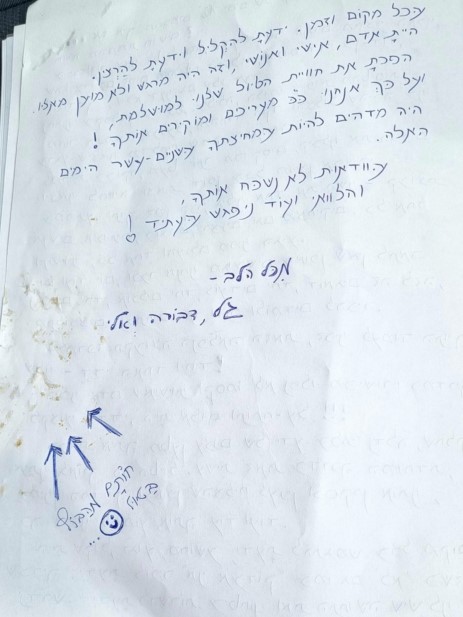 בכל מקום וזמן. ידעת להקליל וידעת להרצין.
היית אדם, אישי ואנושי, וזה היה מרגש ולא מובן מאליו.
הפכת את חוויית הטיול שלנו למושלמת,
ועל כך אנחנו כ"כ מעריכים ומוקירים אותך!
היה מדהים להיות במחיצתך בשנים-עשר הימים
האלה.
בוודאות לא נשכח אותך,
והלוואי ועוד ניפגש בעתיד!
מכל הלב -
גל, דבורה ואלי
חותם מהבוץ
באו"ו
...